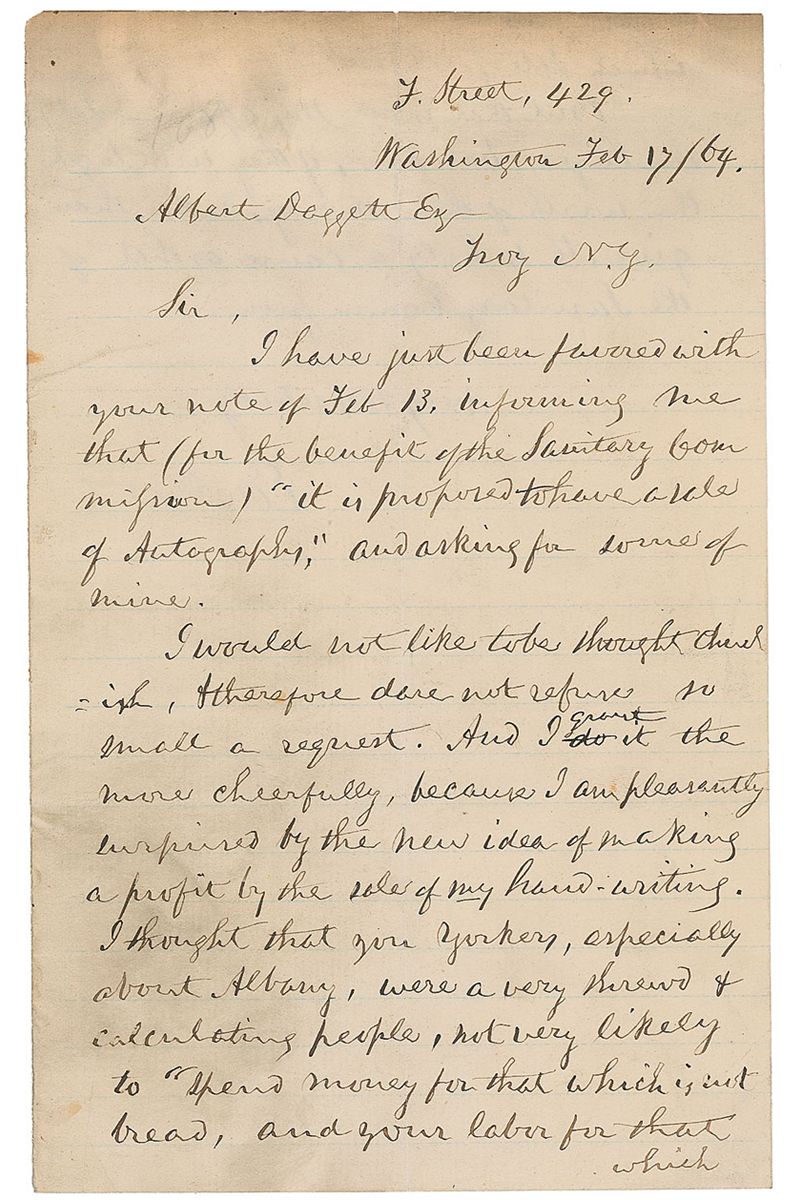 F. Street, 429.
Washington Feb 17/64.
Albert Daggett Esq
Troy N.Y.
Sir,
I have just been favored with
your note of Feb 13, informing me
that (for the benefit of the Sanitary Com
mission) "it is proposed to have a sale
of Autographs," and asking for some of
mine.
I would not like to be thought churl
=ish, & therefore dare not refuse so
small a request. And I do grant it the
more cheerfully, because I am pleasantly
surprised by the new idea of making
a profit by the sale of my hand-writing.
I thought that you Yorkers, especially
about Albany, were a very shrewd &
calculating people, not very likely
to "spend money for that which is not
bread, and your labor for that
which